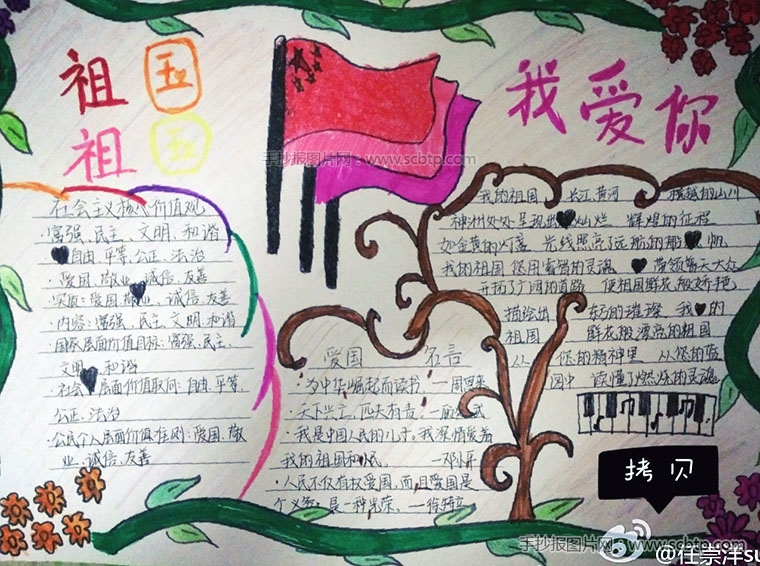 祖国
祖国
我爱你
手抄报图片网:www.scbtp.com
社会主义核心价值观
·富强、民主、文明、和谐
自由、平等、公正、法治
·爱国、敬业、诚信、友善
实质:爱国、敬业、诚信、友善
·内容:富强、民主、文明、和谐
·国家层面价值目标:富强、民主、
文明、和谐
·社会层面价值取向:自由、平等、
公正、法治
·公民个人层面价值准则:爱国、敬
业、诚信、友善
我的祖国 长江 黄河 的山川
神州处处呈现出 灿烂 辉煌的征程
如金黄的灯落 光线照亮了远航的那 帆
我的祖国 您用睿智的灵魂 带领着天大众
开拓了广阔的道路 使祖国鲜花般娇艳
描绘出 东方的璀璨 我 的
祖国 鲜花般漂亮的祖国
从 您的精神里 从您的蓝
图中 读懂了燃烧的灵魂
爱国 名言
·为中华崛起而读书 —周恩来
·天下兴亡、匹夫有责、—顾炎武
·我是中国人民的儿子、我深情爱着
我的祖国和人民 —邓小平
·人民不仅有权爱国、而且爱国是
个义务、是一种光荣、—徐特立
拷贝
手抄报图片网:www.scbtp.com
@任崇洋su